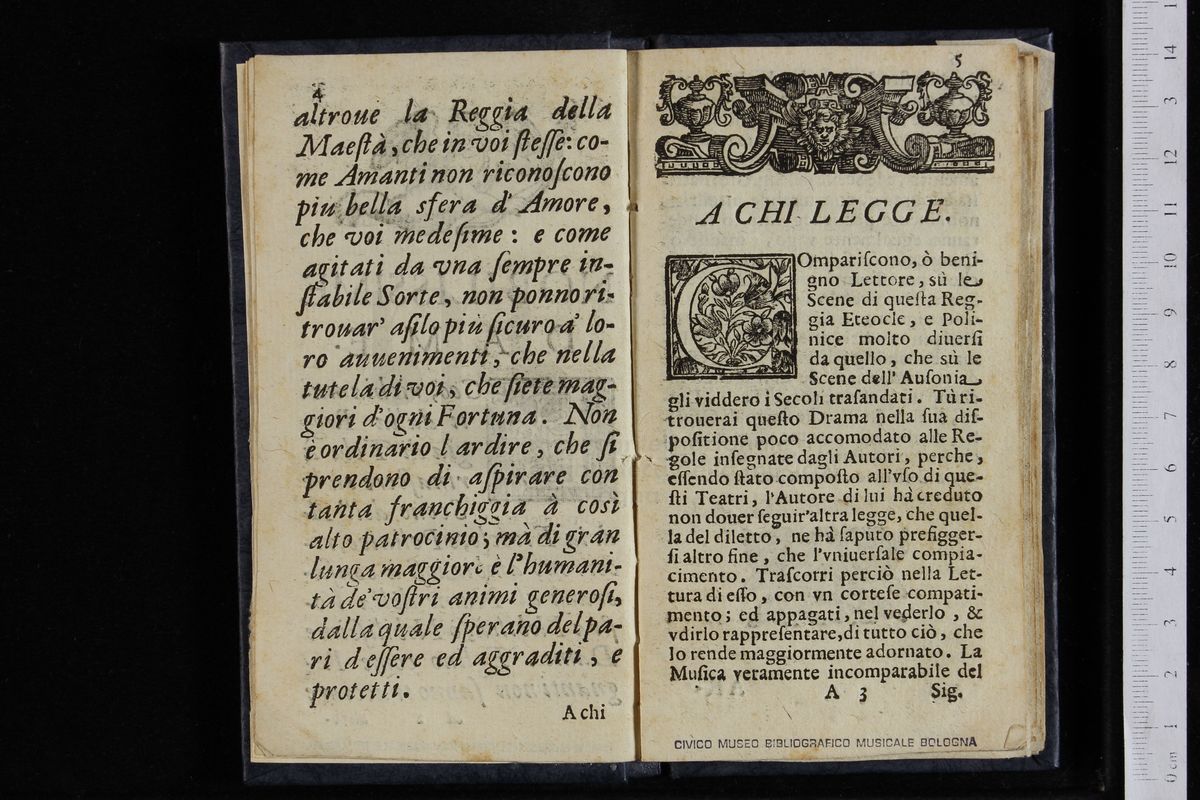 4
altroue la Reggia della
Maeſtà, che in voi ſteſſe: co-
me Amanti non riconoſcono
piu bella sfera d' Amore,
che voi medeſime : e come
agitati da vna ſempre in-
ſtabile Sorte, non ponno ri-
trouar' aſilo più ſicuro a' lo-
ro auuenimenti, che nella
tutela di voi, che ſiete mag-
giori d'ogni Fortuna. Non
è ordinario l ardire, che ſi
prendono di aſpirare con
tanta franchiggia à così
alto patrocinio; mà di gran
lunga maggiore è l'humani-
tà de' voſtri animi generoſi,
dalla quale ſperano del pa-
ri d eſſere ed aggraditi, e
protetti.
A chi
5
A CHI LEGGE.
COmpariſcono, ò beni-
gno Lettore, sù le
Scene di queſta Reg-
gia Eteocle, e Poli-
nice molto diuerſi
da quello, che sù le
Scene dell' Auſonia
gli viddero i Secoli traſandati. Tù ri-
trouerai queſto Drama nella ſua diſ-
poſitione poco accomodato alle Re-
gole inſegnate dagli Autori, perche,
eſſendo ſtato compoſto all'vſo di que-
ſti Teatri, l'Autore di lui hà creduto
non douer ſeguir'altra legge, che quel-
la del diletto, ne hà ſaputo prefigger-
ſi altro fine, che l'vniuerſale compia-
cimento. Traſcorri perciò nella Let-
tura di eſſo, con vn corteſe compati-
mento; ed appagati, nel vederlo, &
vdirlo rappreſentare, di tutto ciò, che
lo rende maggiormente adornato. La
Muſica veramente incomparabile del
A 3 Sig.
CIVICO MUSEO BIBLIOGRAFICO MUSICALE BOLOGNA
0 cm 1 2 3 4 5 6 7 8 9 10 11 12 3 14 1